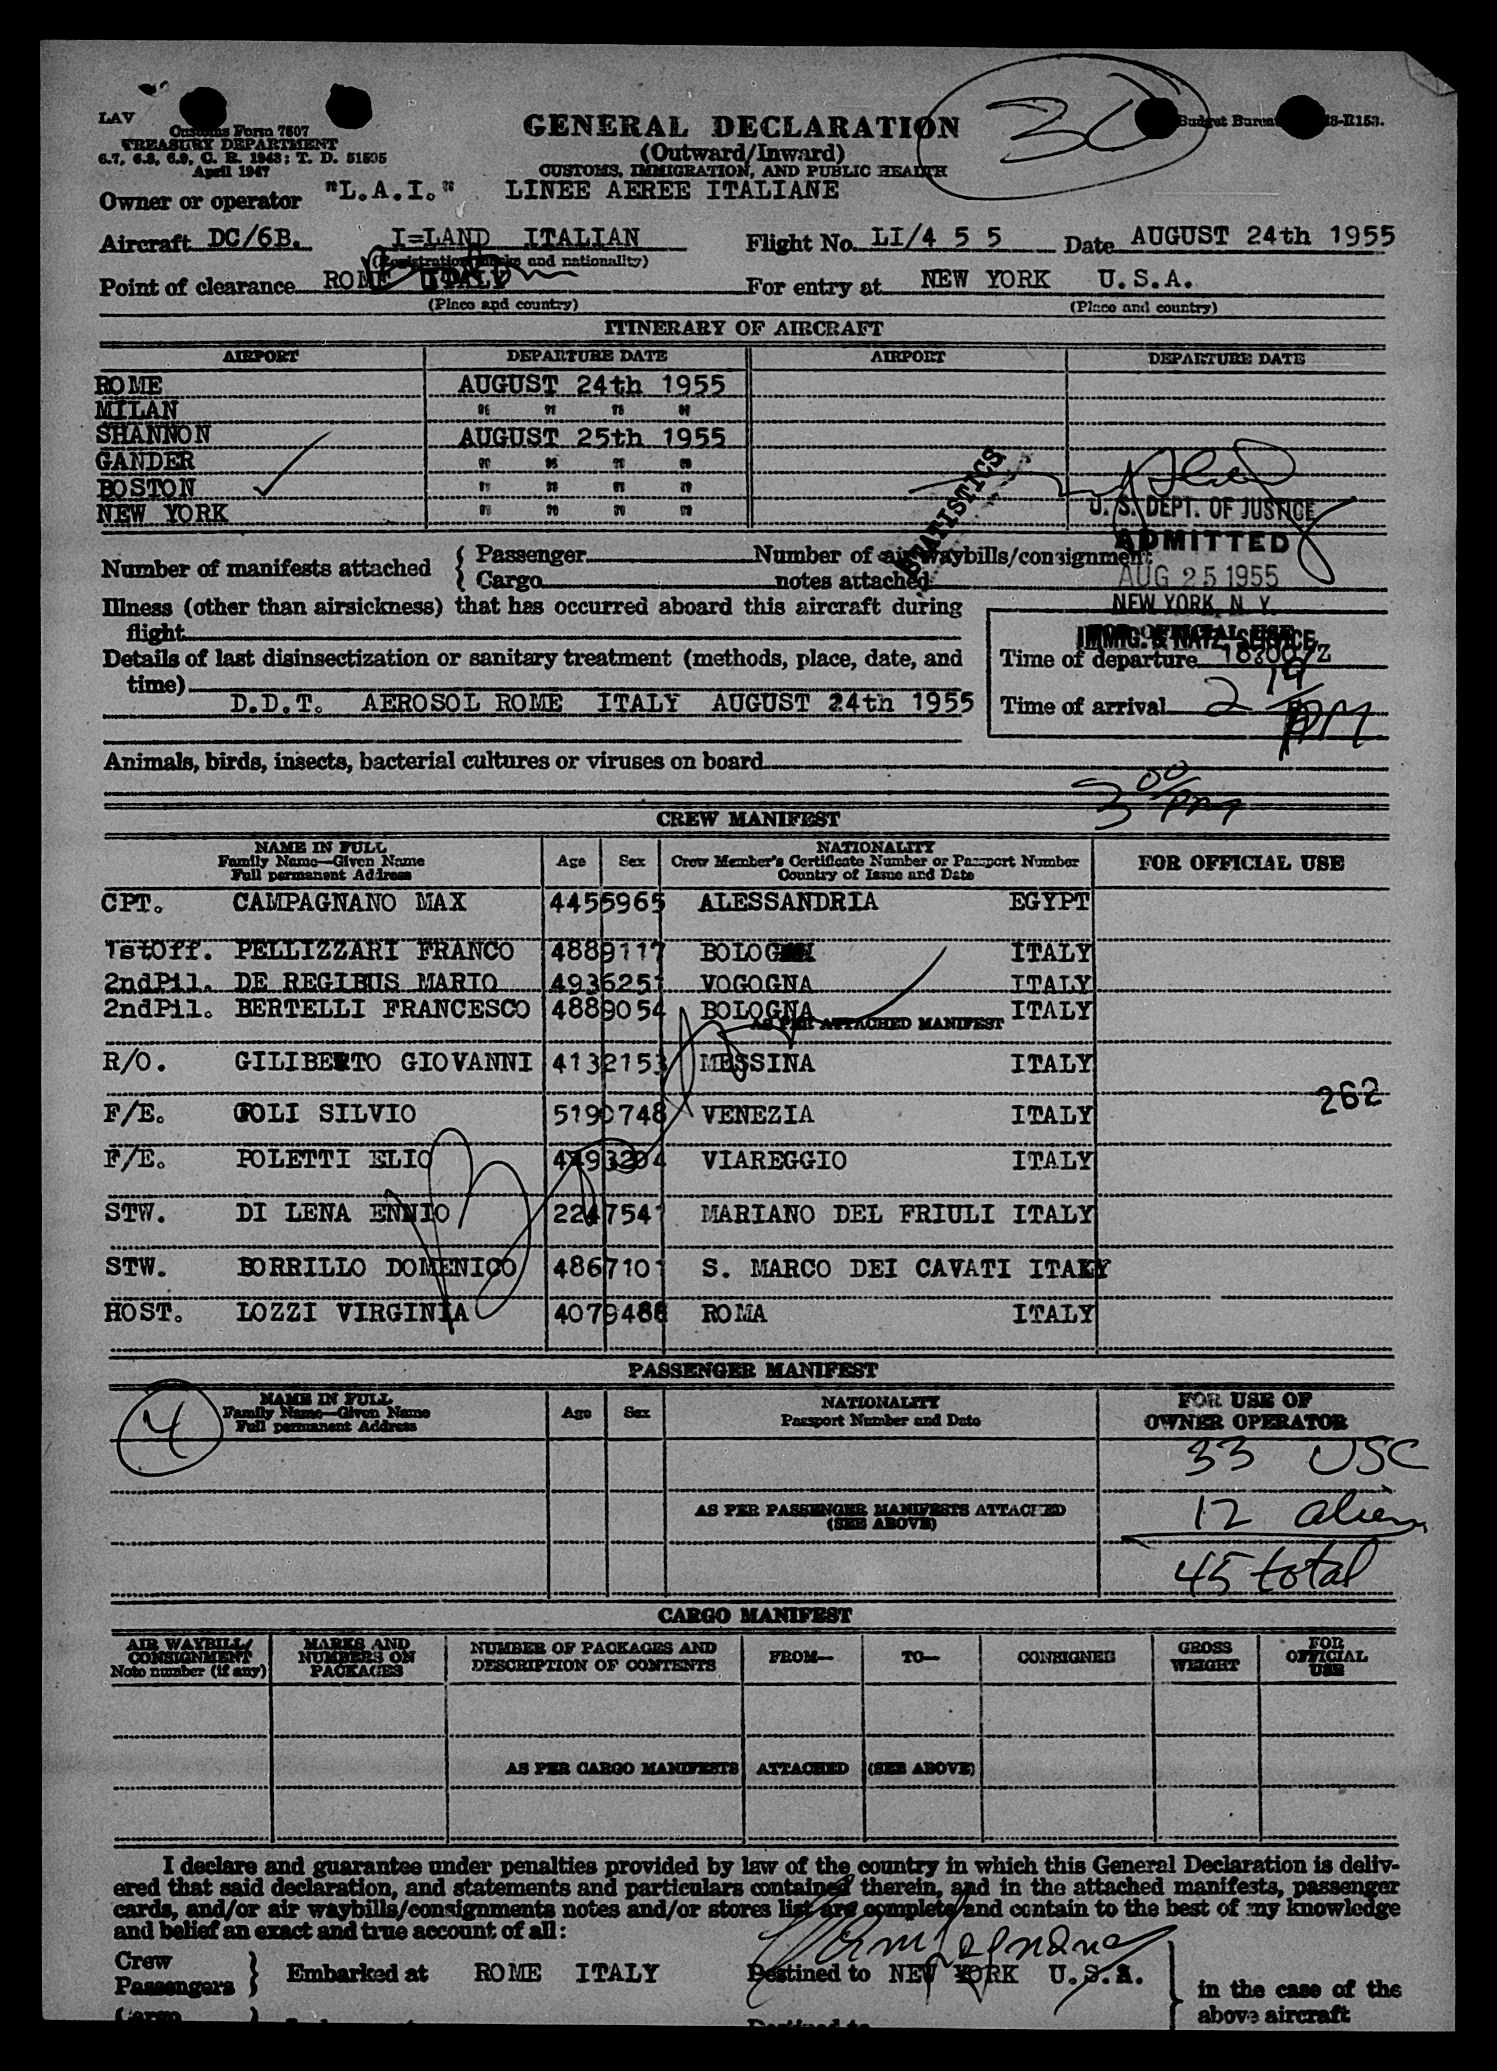 LAV
30
Customs Form 7507
TREASURY DEPARTMENT
6.7, 6.8, 6.9, C. R. 1943; T. D. 51595
April 1947
GENERAL DECLARATION
(Outward/Inward)
CUSTOMS, IMMIGRATION, AND PUBLIC HEALTH
Budget Bureau 8-R153.
Owner or operator "L.A.I." LINEE AEREE ITALIANE
Aircraft DC/6B. I=LAND ITALIAN Flight No. LI/4 5 5 Date AUGUST 24th 1955
(Registration marks and nationality)
Point of clearance ROME ITALY For entry at NEW YORK U.S.A.
(Place and country) (Place and country)
ITINERARY OF AIRCRAFT
AIRPORT DEPARTURE DATE AIRPORT DEPARTURE DATE
ROME AUGUST 24th 1955
MILAN " " " "
SHANNON AUGUST 25th 1955
GANDER " " " "
BOSTON " " " "
NEW YORK " " " "
STATISTICS
U. S. DEPT. OF JUSTICE
ADMITTED
AUG 25 1955
NEW YORK, N. Y.
IMMIG. & NATZ. SERVICE
Number of manifests attached { Passenger Number of air waybills/consignment
Cargo notes attached
Illness (other than airsickness) that has occurred aboard this aircraft during
flight
FOR OFFICIAL USE
Details of last disinsectization or sanitary treatment (methods, place, date, and
time)
Time of departure 18:00/Z
D.D.T. AEROSOL ROME ITALY AUGUST 24th 1955
Time of arrival 2 19/PM
Animals, birds, insects, bacterial cultures or viruses on board
3 00/PM
CREW MANIFEST
NAME IN FULL
Family Name—Given Name
Full permanent Address
Age Sex
NATIONALITY
Crew Member's Certificate Number or Passport Number
Country of Issue and Date
FOR OFFICIAL USE
CPT. CAMPAGNANO MAX 4455965 ALESSANDRIA EGYPT
1stOff. PELLIZZARI FRANCO 4889117 BOLOGNA ITALY
2ndPil. DE REGIBUS MARIO 4936251 VOGOGNA ITALY
2ndPil. BERTELLI FRANCESCO 4889054 BOLOGNA ITALY
AS PER ATTACHED MANIFEST
R/O. GILIBERTO GIOVANNI 4132153 MESSINA ITALY
262
F/E. GOLI SILVIO 5190748 VENEZIA ITALY
F/E. POLETTI ELIO VIAREGGIO ITALY
STW. DI LENA ENNIO 2247541 MARIANO DEL FRIULI ITALY
STW. BORRILLO DOMENICO 4867101 S. MARCO DEI CAVATI ITALY
HOST. LOZZI VIRGINIA 4079488 ROMA ITALY
PASSENGER MANIFEST
4
NAME IN FULL
Family Name—Given Name
Full permanent Address
Age Sex
NATIONALITY
Passport Number and Date
FOR USE OF
OWNER OPERATOR
33 USC
AS PER PASSENGER MANIFESTS ATTACHED
(SEE ABOVE)
12 aliens
45 total
CARGO MANIFEST
AIR WAYBILL/
CONSIGNMENT
Note number (if any)
MARKS AND
NUMBERS ON
PACKAGES
NUMBER OF PACKAGES AND
DESCRIPTION OF CONTENTS
FROM— TO— CONSIGNEE
GROSS
WEIGHT
FOR
OFFICIAL
USE
AS PER CARGO MANIFESTS ATTACHED (SEE ABOVE)
I declare and guarantee under penalties provided by law of the country in which this General Declaration is deliv-
ered that said declaration, and statements and particulars contained therein, and in the attached manifests, passenger
cards, and/or air waybills/consignments notes and/or stores list are complete and contain to the best of my knowledge
and belief an exact and true account of all:
Campagnano
Crew
Passengers } Embarked at ROME ITALY Destined to NEW YORK U.S.A.
in the case of the
above aircraft
Cargo
Destined to